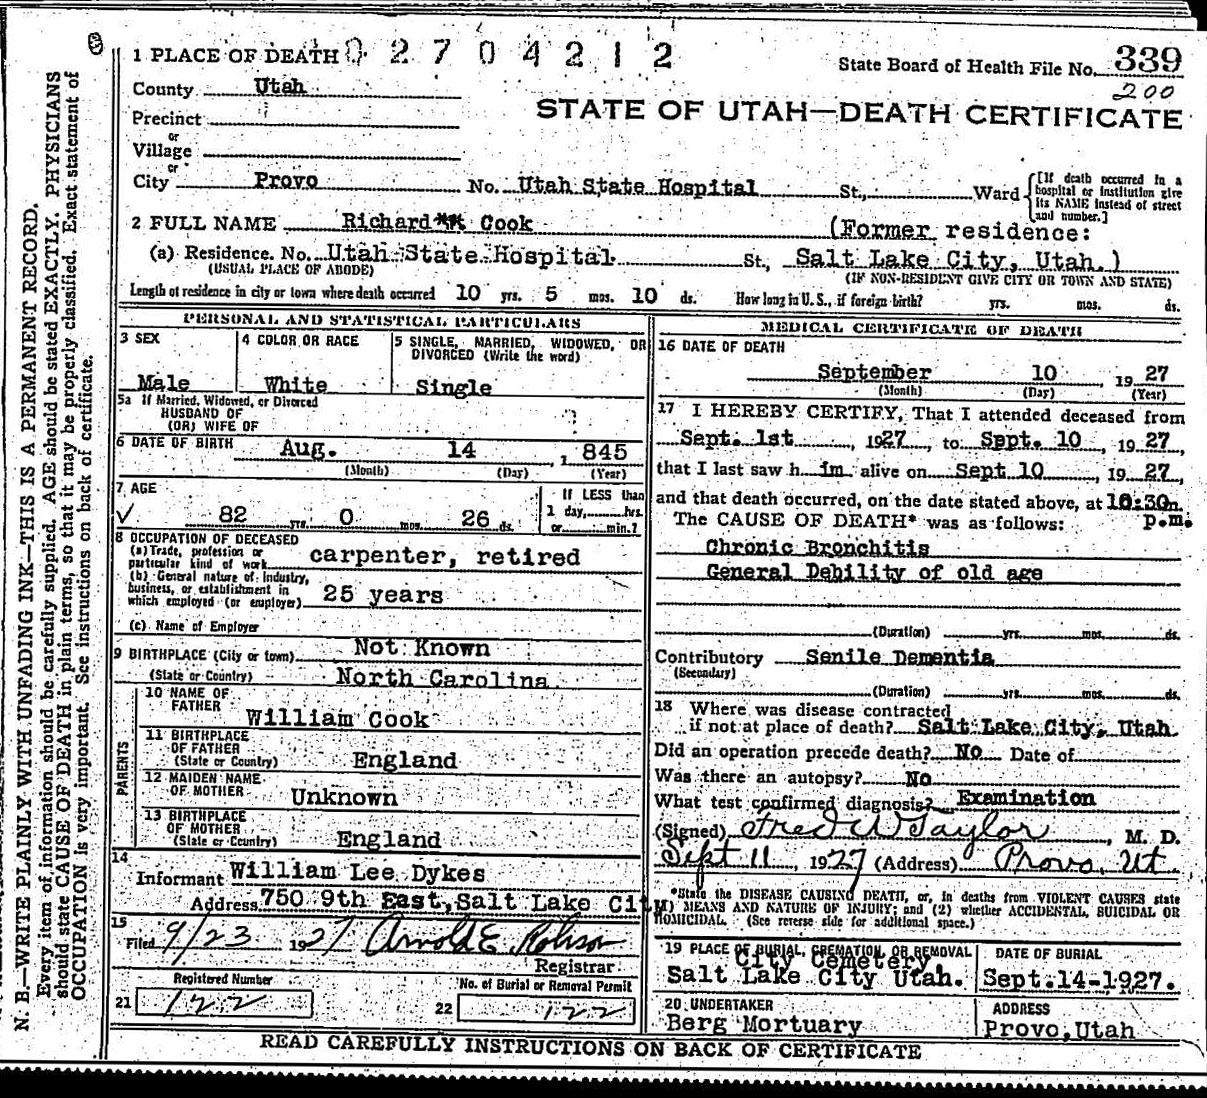 1 PLACE OF DEATH 0 2 7 0 4 2 1 2
State Board of Health File No. 339
200
County Utah
STATE OF UTAH—DEATH CERTIFICATE
Precinct
or
Village
or
City Provo No. Utah State Hospital St., Ward
[If death occurred in a hospital or institution give its NAME instead of street and number.]
2 FULL NAME Richard Cook (Former residence:
(a) Residence. No. Utah State Hospital St., Salt Lake City, Utah.)
(USUAL PLACE OF ABODE) (IF NON-RESIDENT GIVE CITY OR TOWN AND STATE)
Length of residence in city or town where death occurred 10 yrs. 5 mos. 10 ds. How long in U. S., if foreign birth? yrs. mos. ds.
PERSONAL AND STATISTICAL PARTICULARS
3 SEX
Male
4 COLOR OR RACE
White
5 SINGLE, MARRIED, WIDOWED, OR
DIVORCED (Write the word)
Single
5a If Married, Widowed, or Divorced
HUSBAND OF
(OR) WIFE OF
6 DATE OF BIRTH Aug. 14, 1845
(Month) (Day) (Year)
7 AGE
82 yrs. 0 mos. 26 ds.
If LESS than
1 day, hrs.
or min.?
8 OCCUPATION OF DECEASED
(a) Trade, profession or
particular kind of work carpenter, retired
(b) General nature of Industry,
business, or establishment in
which employed (or employer) 25 years
(c) Name of Employer
9 BIRTHPLACE (City or town) Not Known
(State or Country) North Carolina
PARENTS
10 NAME OF
FATHER William Cook
11 BIRTHPLACE
OF FATHER
(State or Country) England
12 MAIDEN NAME
OF MOTHER Unknown
13 BIRTHPLACE
OF MOTHER
(State or Country) England
14
Informant William Lee Dykes
Address 750 9th East, Salt Lake City
15
Filed 9/23 1927 Arnold E Robison
Registrar
Registered Number
21 122
No. of Burial or Removal Permit
22 122
MEDICAL CERTIFICATE OF DEATH
16 DATE OF DEATH
September 10, 1927
(Month) (Day) (Year)
17 I HEREBY CERTIFY, That I attended deceased from
Sept. 1st, 1927, to Sept. 10, 1927,
that I last saw him alive on Sept 10, 1927,
and that death occurred, on the date stated above, at 10:30m.
The CAUSE OF DEATH* was as follows: p.m.
Chronic Bronchitis
General Debility of old age
(Duration) yrs. mos. ds.
Contributory Senile Dementia
(Secondary)
(Duration) yrs. mos. ds.
18 Where was disease contracted
if not at place of death? Salt Lake City, Utah.
Did an operation precede death? No Date of
Was there an autopsy? No
What test confirmed diagnosis? Examination
(Signed) Fred W Taylor, M. D.
Sept 11, 1927 (Address) Provo, Ut.
*State the DISEASE CAUSING DEATH, or, in deaths from VIOLENT CAUSES state
) MEANS AND NATURE OF INJURY; and (2) whether ACCIDENTAL, SUICIDAL OR
HOMICIDAL. (See reverse side for additional space.)
19 PLACE OF BURIAL, CREMATION, OR REMOVAL
City Cemetery
Salt Lake City Utah.
DATE OF BURIAL
Sept.14-1927.
20 UNDERTAKER
Berg Mortuary
ADDRESS
Provo, Utah
READ CAREFULLY INSTRUCTIONS ON BACK OF CERTIFICATE
N. B.—WRITE PLAINLY WITH UNFADING INK—THIS IS A PERMANENT RECORD.
Every item of information should be carefully supplied. AGE should be stated EXACTLY. PHYSICIANS
should state CAUSE OF DEATH in plain terms, so that it may be properly classified. Exact statement of
OCCUPATION is very important. See instructions on back of certificate.